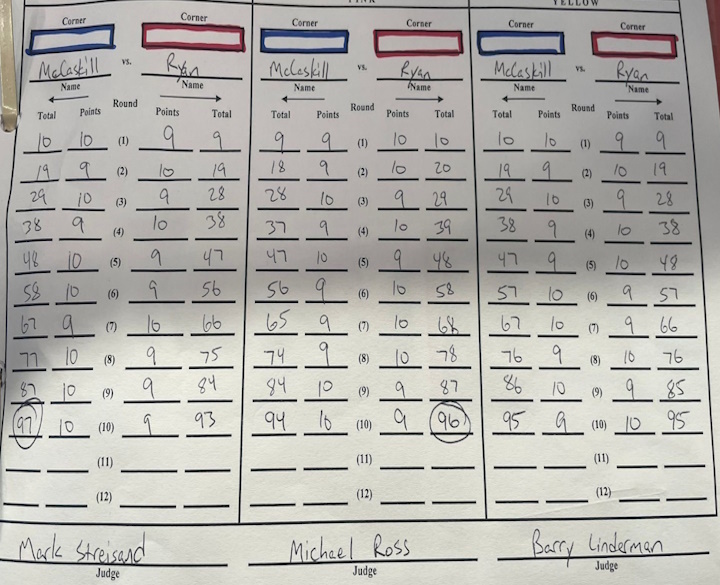 YELLOW
Corner Corner Corner Corner Corner Corner
McCaskill vs. Ryan McCaskill vs. Ryan McCaskill vs. Ryan
Name Name Name Name Name Name
Total Points Round Points Total Total Points Round Points Total Total Points Round Points Total
10 10 (1) 9 9 9 9 (1) 10 10 10 10 (1) 9 9
19 9 (2) 10 19 18 9 (2) 10 20 19 9 (2) 10 19
29 10 (3) 9 28 28 10 (3) 9 29 29 10 (3) 9 28
38 9 (4) 10 38 37 9 (4) 10 39 38 9 (4) 10 38
48 10 (5) 9 47 47 10 (5) 9 48 47 9 (5) 10 48
58 10 (6) 9 56 56 9 (6) 10 58 57 10 (6) 9 57
67 9 (7) 10 66 65 9 (7) 10 68 67 10 (7) 9 66
77 10 (8) 9 75 74 9 (8) 10 78 76 9 (8) 10 76
87 10 (9) 9 84 84 10 (9) 9 87 86 10 (9) 9 85
97 10 (10) 9 93 94 10 (10) 9 96 95 9 (10) 10 95
(11) (11) (11)
(12) (12) (12)
Mark Streisand Michael Ross Barry Linderman
Judge Judge Judge